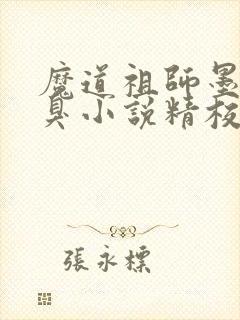 魔道祖師墨
臭小說精校
張永標